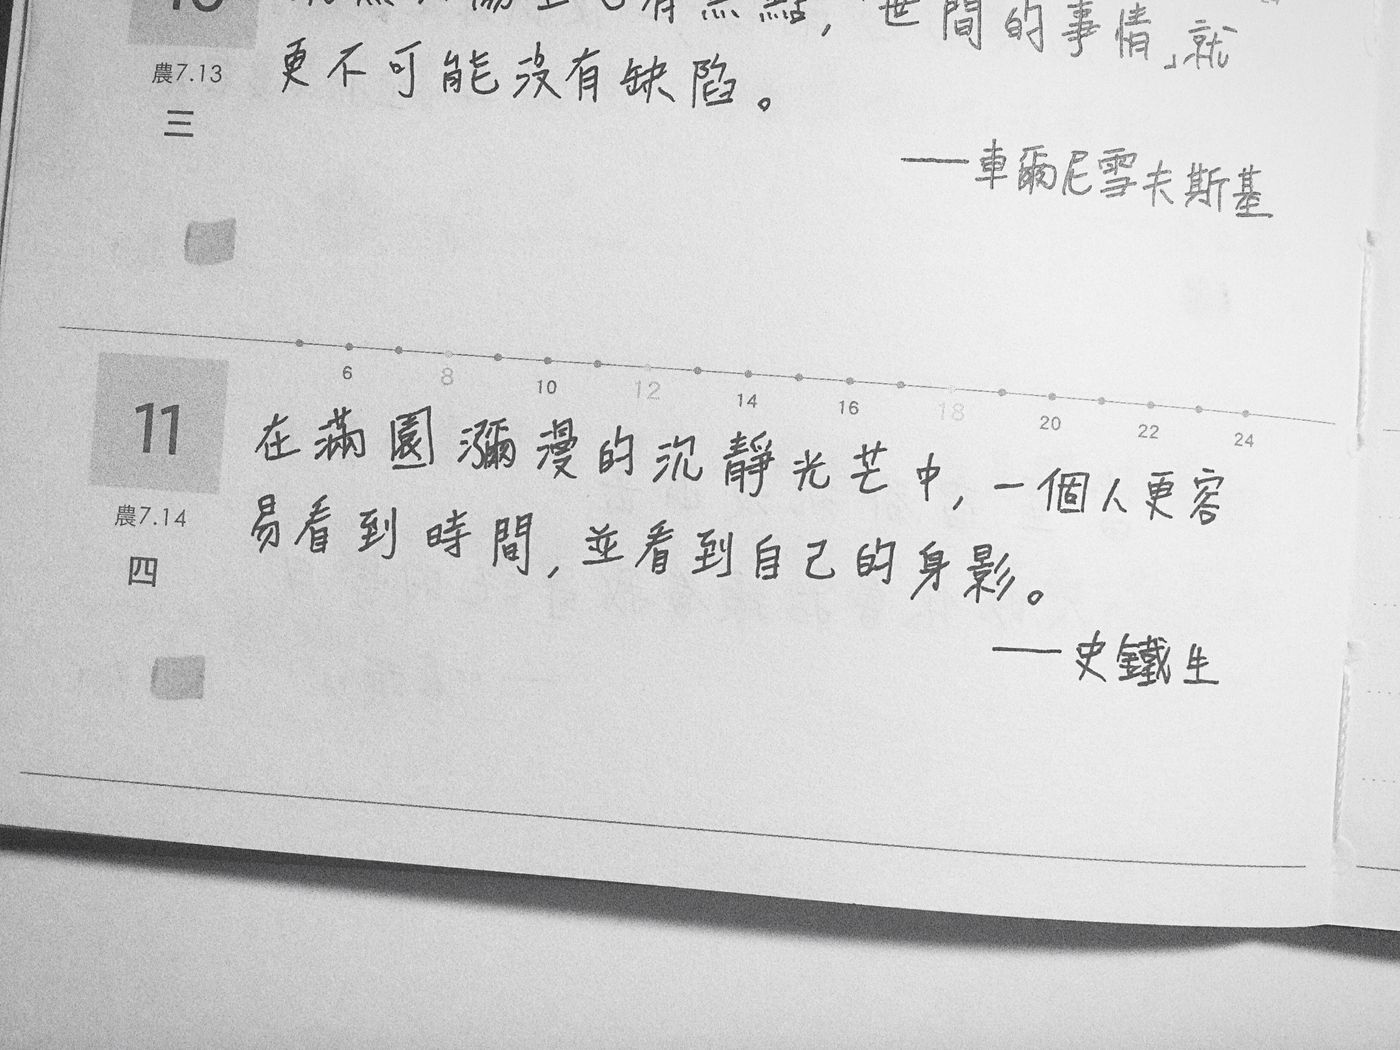 10
有黑點,「世間的事情」就
更不可能沒有缺陷。
農7.13
三
——車爾尼雪夫斯基
6 8 10 12 14 16 18 20 22 24
11
在滿園瀰漫的沉靜光芒中,一個人更容
易看到時間,並看到自己的身影。
農7.14
四
——史鐵生